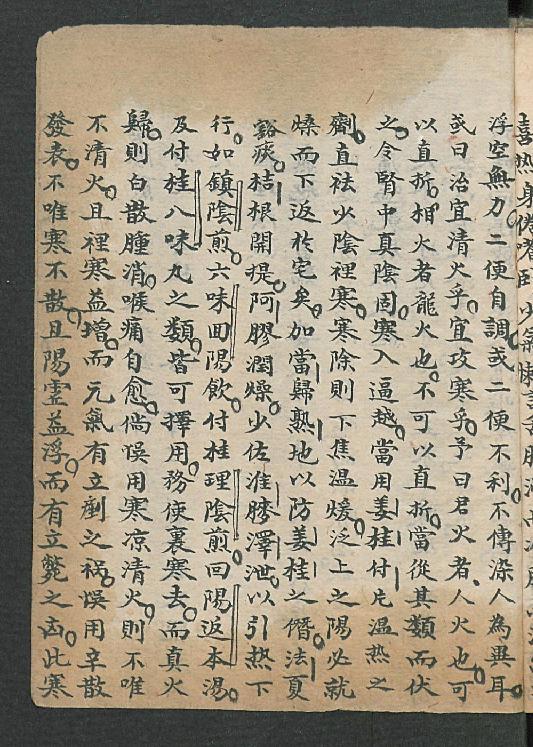 浮空無力。二便自調。或二便不利。不傳染人為異耳。
或曰治宜清火乎。宜攻寒乎。予曰君火者、人火也。可
以直折。相火者龍火也。不可以直折。當從其類而伏
之。令腎中真陰固。寒入逼越。當用姜桂付片温熱之
劑。直祛少陰裡寒。寒除則下焦温煖。泛上之陽必就
燥而下返於宅矣。加當歸熟地以防姜桂之僭。法夏
豁痰。桔根開提。阿膠潤燥。少佐淮膝澤泄。以引熱下
行。如鎮陰煎。六味回陽飲。付桂理陰煎。回陽返本湯。
及付桂八味丸之類。皆可擇用。務使裏寒去。而真火
歸。則白散腫消。喉痛自愈。倘悞用寒凉清火。則不唯
不清火。且裡寒益增。而元氣有立剷之禍。悞用辛散
發表。不唯寒不散。且陽虛益浮。而有立斃之凶。此寒